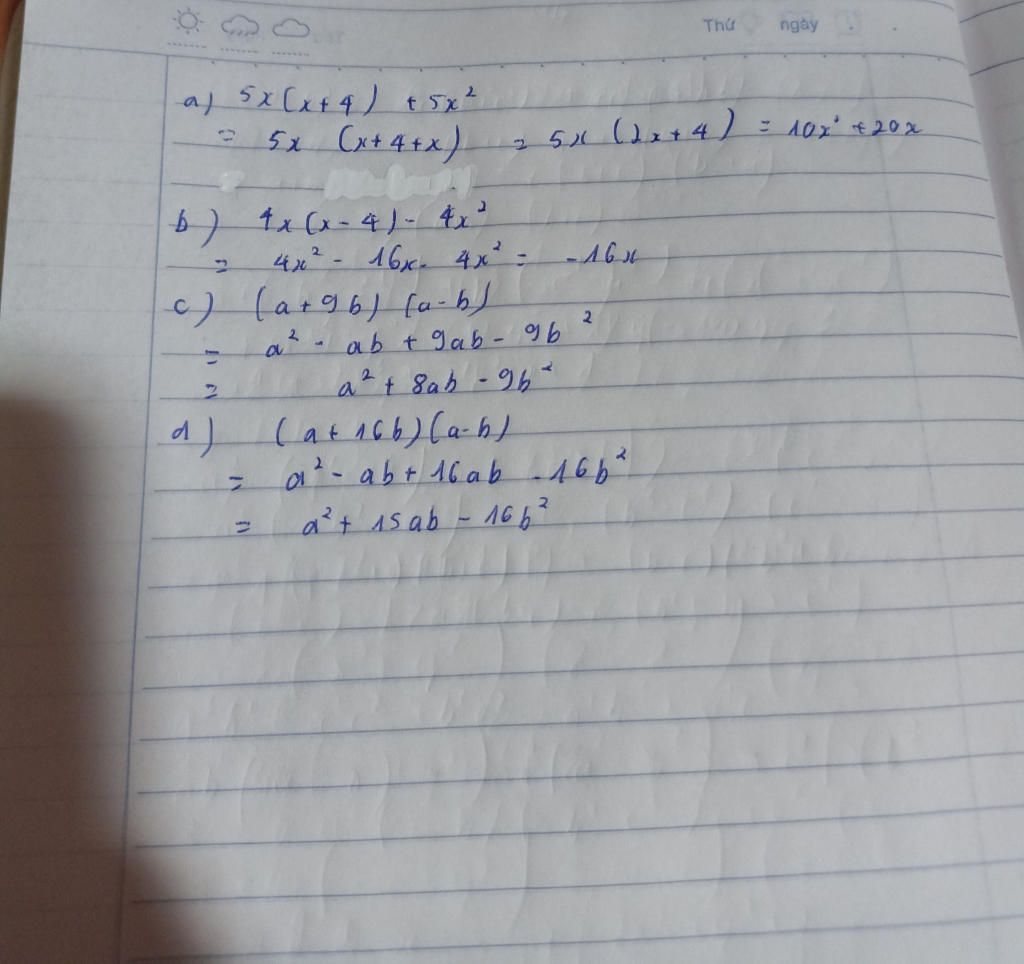 Thứ ngày
a) 5x(x+4) + 5x²
= 5x (x+4+x) = 5x (2x+4) = 10x² + 20x
b) 4x(x-4) - 4x²
= 4x² - 16x - 4x² = -16x
c) (a+9b) (a-b)
= a² - ab + 9ab - 9b²
= a² + 8ab - 9b²
d) (a+16b)(a-b)
= a² - ab + 16ab - 16b²
= a² + 15ab - 16b²